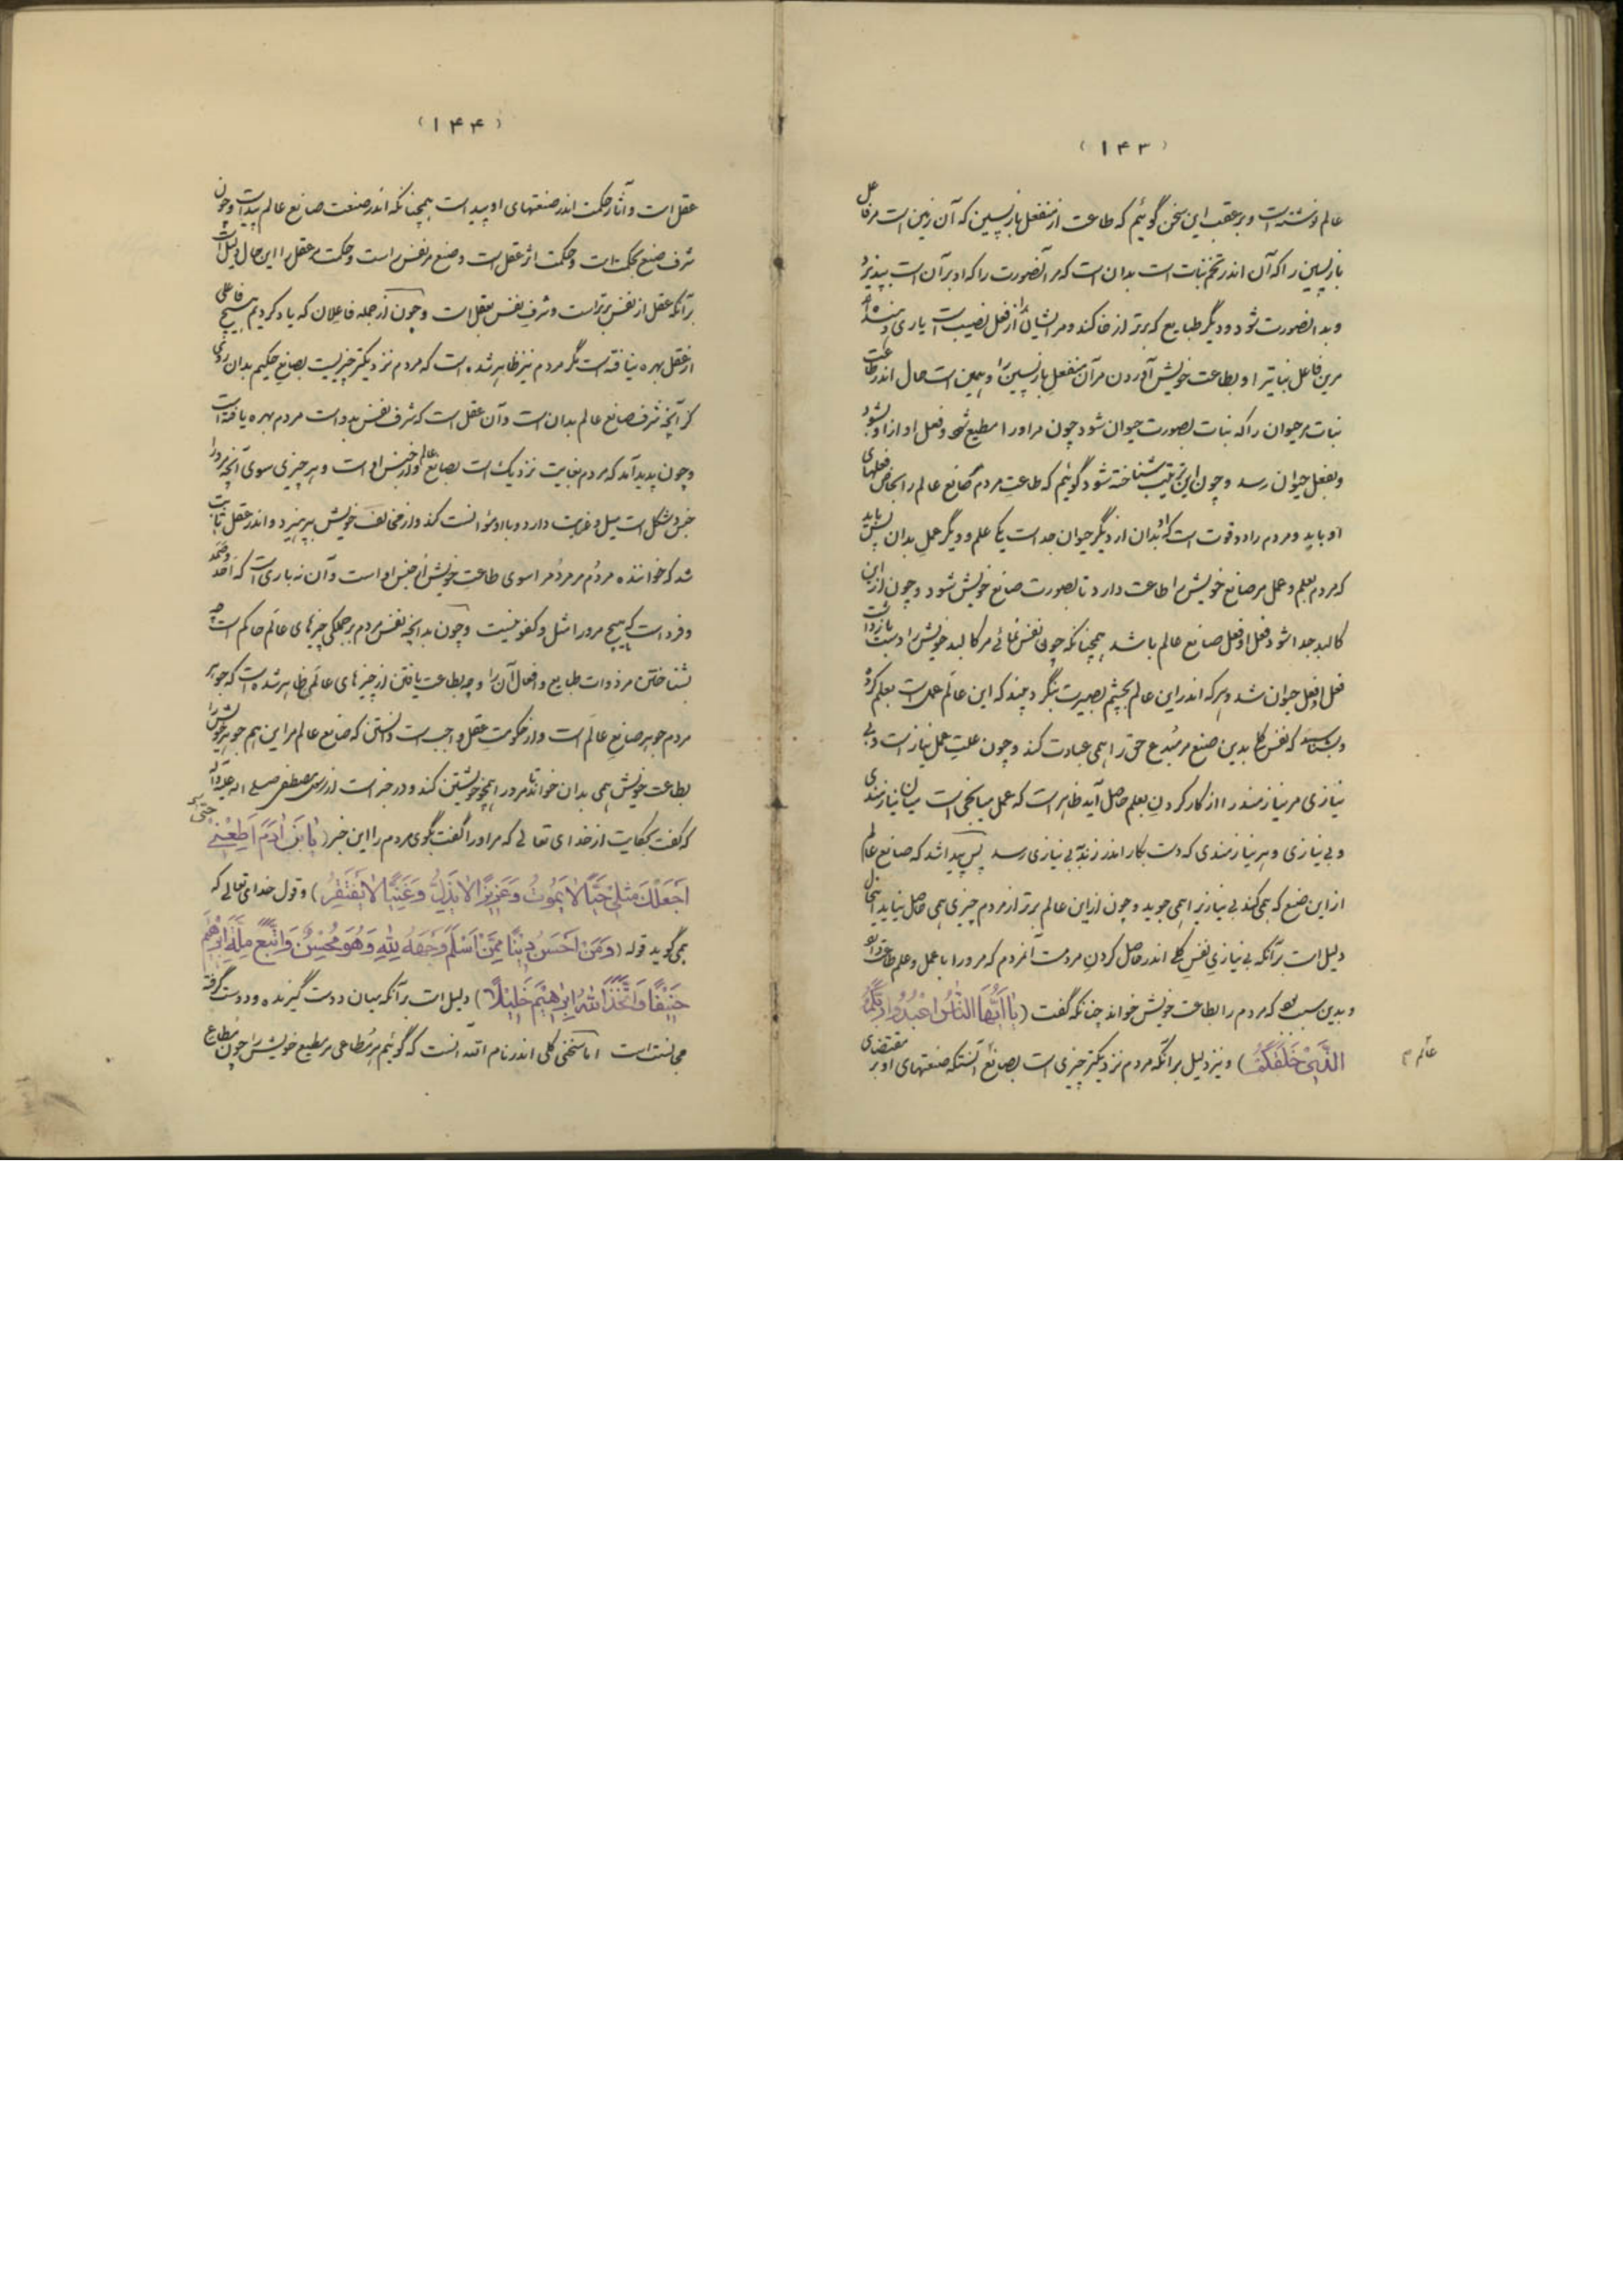 (۱۴۳)
عالم نوشته است و بر عقب این سخن گوئیم که طاعت از منفعل بازپسین که آن زمین است مر فاعل
بازپسین را که آن اندر تخم نبات است بدان است که مر آنصورت را که او بر آن است بپذیرد
و بدانصورت شود و دیگر طبایع که برتر از خاکند و مر ایشان را از فعل نصیب است یاری دهنده اند
مرین فاعل نباتیرا و بطاعت خویش آوردن مر آن منفعل بازپسین را و همین است حال اندر طاعت
نبات مر حیوان را که نبات بصورت حیوان شود چون مر او را مطیع شود و فعل او از او بشود
و بفعل حیوان رسد و چون این ترتیب شناخته شود گوئیم که طاعت مردم صانع عالم را بخاص فعلهای
او باید و مردم را دو قوت است که او بدان از دیگر حیوان جداست یکی علم و دیگر عمل بدان پس باید
که مردم بعلم و عمل مر صانع خویش را طاعت دارد تا بصورت صانع خویش شود و چون از این
کالبد جدا شود فعل او فعل صانع عالم باشد همچنانکه چون نفس نمائی مر کالبد خویش را از دست بازداشت
فعل او فعل حیوان شد و هر که اندر این عالم بچشم بصیرت بنگرد بیند که این عالم عملی است بعلم کرده
و بشناسد که نفس کل بدین صنع مر مُبدِع حق را همی عبادت کند و چون علت عمل نیاز است و بی
نیازی مر نیازمند را از کار کردن بعلم حاصل آید ظاهر است که عمل میانجی است میان نیازمندی
و بی نیازی و هر نیازمندی که دست بکار اندر زند به بی نیازی رسد پس پیدا شد که صانع عالم
از این صنع که همی کند بی نیازیرا همی جوید و چون از این عالم برتر از مردم چیزی همی حاصل نیاید اینحال
دلیل است بر آنکه بی نیازی نفس کلی اندر حاصل کردن مردمست آنمردم که مر او را با عمل و علم طاعت دارد
و بدین سبب بود که مردم را بطاعت خویش خواند چنانکه گفت (یا اَیُّهَا النّاسُ اعْبُدُوا رَبَّکُمُ
الَّذی خَلَقَکُمْ) و نیز دلیل بر آنکه مردم نزدیکتر چیزی است بصانع آنستکه صنعتهای او بر مقتضای
عالم
(۱۴۴)
عقل است و آثار حکمت اندر صنعتهای او پیداست همچنانکه اندر صنعت صانع عالم پیداست و چون
شرف صنع بحکمت است و حکمت اثر عقل است و صنع مر نفس راست و حکمت مر عقل را این حال دلیل است
بر آنکه عقل از نفس برتر است و شرف نفس بعقل است و چون از جمله فاعلان که یاد کردیم هیچ فاعلی
از عقل بهره نیافته است مگر مردم نیز ظاهر شده است که مردم نزدیکتر چیزیست بصانع حکیم بدان روی
کز آنچه شرف صانع عالم بدان است و آن عقل است که شرف نفس بدوست مردم بهره یافته است
و چون پدید آمد که مردم بغایت نزدیک است بصانع عالم و از جنس اوست و هر چیزی سوی آنچه مر او را
جنس و شکل است میل و رغبت دارد و با او مؤانست کند و از مخالف خویش بپرهیزد و اندر عقل ثابت
شد که خواننده مردم مر مردم را سوی طاعت خویش از جنس او است و آن نه باری است که احد و صمد
و فرد است که هیچ مر او را مثل و کفو نیست و چون بدانچه نفس مردم بر جملگی چیزهای عالم حاکم است چه
بشناختن مر ذوات طبایع و افعال آن را و چه بطاعت یافتن از چیزهای عالمی ظاهر شده است که جوهر
مردم جوهر صانع عالم است و از حکومت عقل واجب است دانستن که صانع عالم مر این هم جوهر خویش را
بطاعت خویش همی بدان خواند تا مر او را همچو خویشتن کند و در خبر است از رسول مصطفی صلی اله علیه و آله
که گفت بحکایت از خدای تعالی که مر او را گفت بگوی مردم را این خبر (یا بَنی آدَمَ اَطِعْنی حتّی
اَجعَلَکَ مِثلی حَیّاً لا یَمُوتُ وَ عَزیزاً لا یَذِلُّ وَ غَنِیّاً لا یَفتَقِرُ) و قول خدای تعالی که
همی گوید قوله (وَ مَنْ اَحْسَنُ دیناً مِمَّنْ اَسْلَمَ وَجْهَهُ لِلّهِ وَ هُوَ مُحْسِنٌ وَ اتَّبَعَ مِلَّةَ اِبْرهیمَ
حَنیفاً وَ اتَّخَذَ اللهُ اِبْرهیمَ خَلیلاً) دلیل است بر آنکه میان دوست گیرنده و دوست گرفته
مجانست است اما سخنی کلی اندر نام اله آنست که گوئیم هر مُطاعی مر مطیع خویش را چون مُطاع